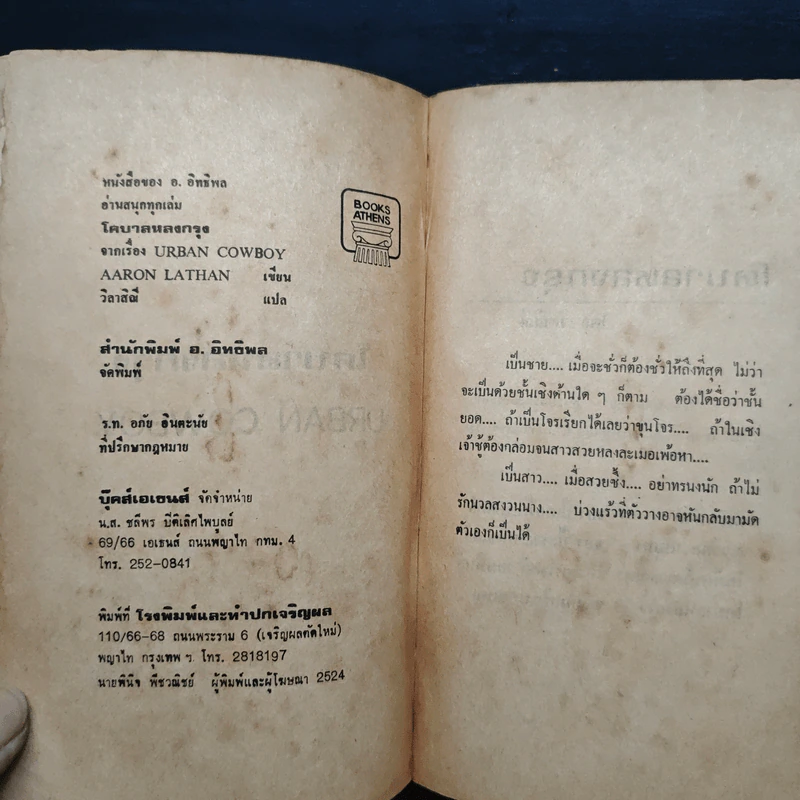 หนังสือของ อ. อิทธิพล
อ่านสนุกทุกเล่ม
โคบาลหลงกรุง
จากเรื่อง URBAN COWBOY
AARON LATHAN เขียน
วิลาสิณี แปล
BOOKS
ATHENS
สำนักพิมพ์ อ. อิทธิพล
จัดพิมพ์
ร.ท. อภัย อินตะนัย
ที่ปรึกษากฎหมาย
บุ๊คส์เอเธนส์ จัดจำหน่าย
น.ส. ชลีพร ปิติเลิศไพบูลย์
69/66 เอเธนส์ ถนนพญาไท กทม. 4
โทร. 252-0841
พิมพ์ที่ โรงพิมพ์และทำปกเจริญผล
110/66-68 ถนนพระราม 6 (เจริญผลตัดใหม่)
พญาไท กรุงเทพ ฯ โทร. 2818197
นายพินิจ พืชวณิชย์ ผู้พิมพ์และผู้โฆษณา 2524
เป็นชาย.... เมื่อจะชั่วก็ต้องชั่วให้ถึงที่สุด ไม่ว่า
จะเป็นด้วยชั้นเชิงด้านใด ๆ ก็ตาม ต้องได้ชื่อว่าชั้น
ยอด.... ถ้าเป็นโจรเรียกได้เลยว่าขุนโจร.... ถ้าในเชิง
เจ้าชู้ต้องกล่อมจนสาวสวยหลงละเมอเพ้อหา....
เป็นสาว.... เมื่อสวยซึ้ง.... อย่าทรนงนัก ถ้าไม่
รักนวลสงวนนาง.... บ่วงแร้วที่ตัววางอาจหันกลับมามัด
ตัวเองก็เป็นได้